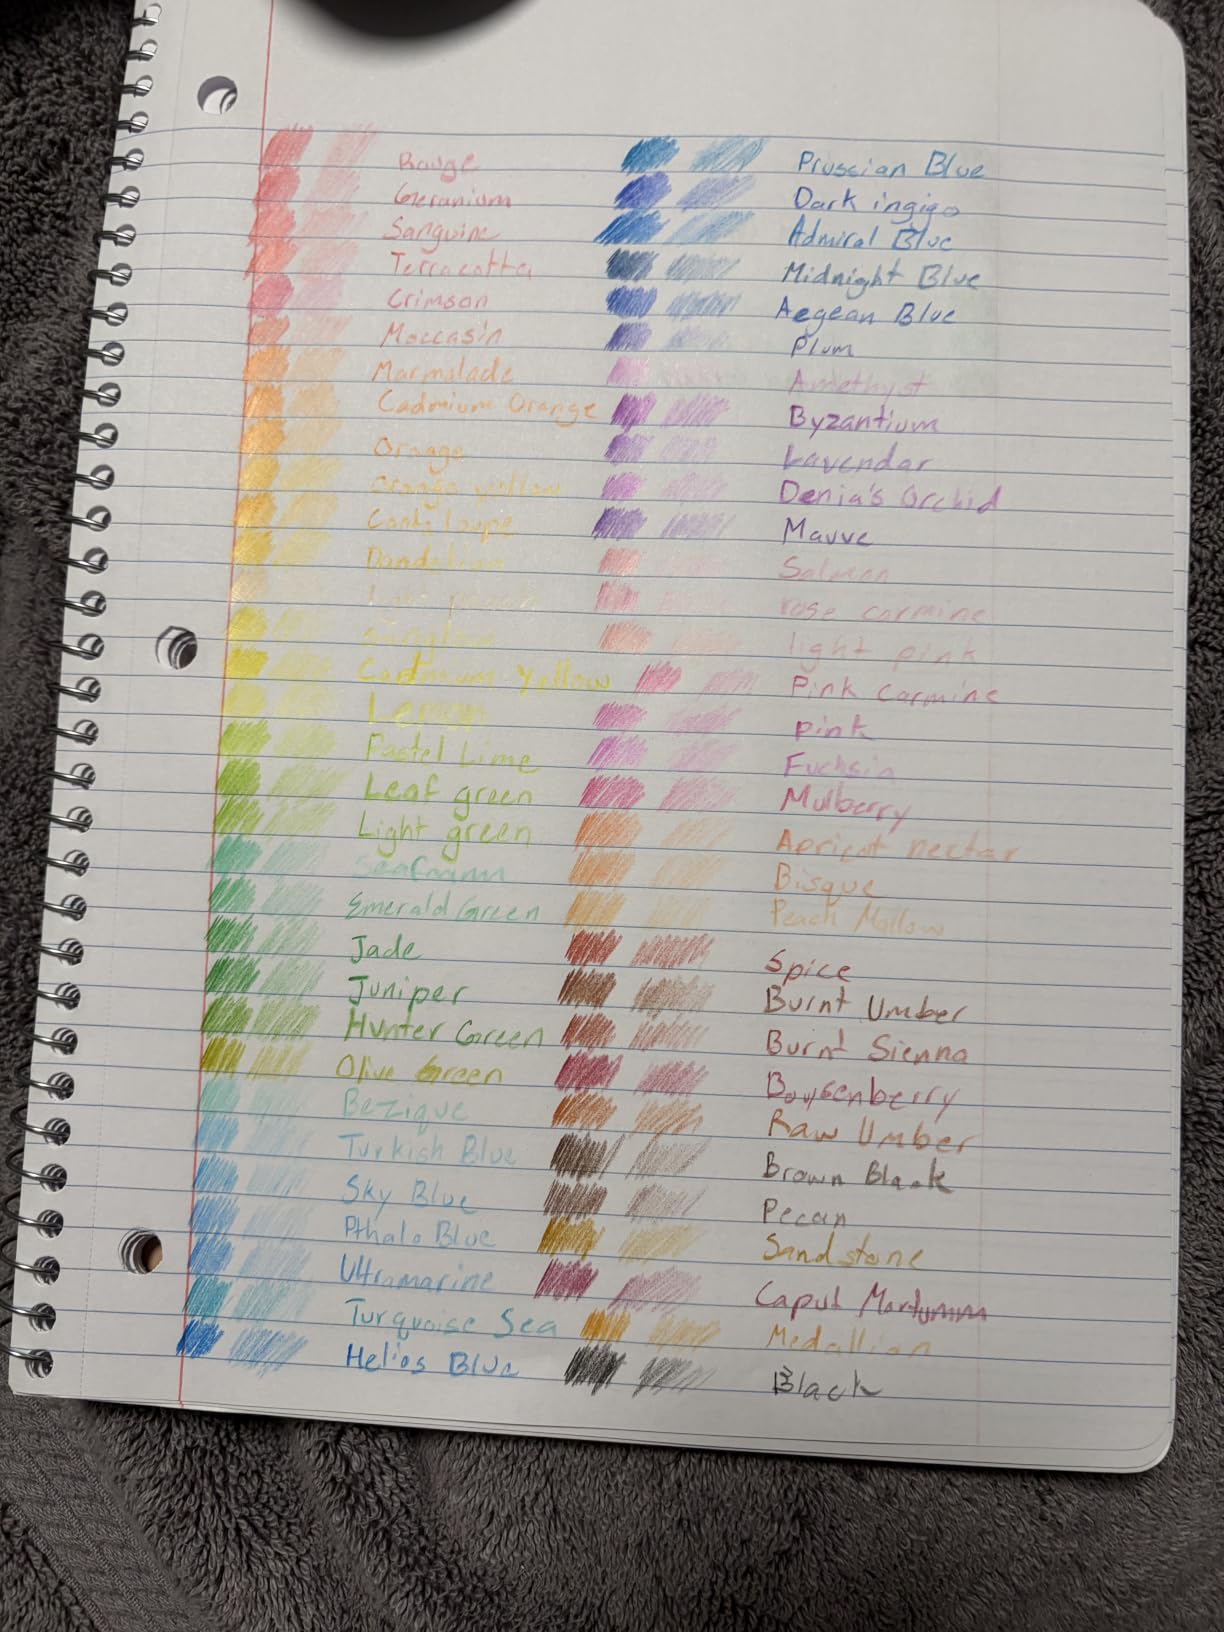 Rouge
Geranium
Sanguine
Terracotta
Crimson
Moccasin
Marmalade
Cadmium Orange
Orange
Orange yellow
Cantaloupe
Dandelion
light
Sunglow
Cadmium Yellow
Lemon
Pastel Lime
Leaf green
Light green
Seafoam
Emerald Green
Jade
Juniper
Hunter Green
Olive Green
Bezique
Turkish Blue
Sky Blue
Pthalo Blue
Ultramarine
Turquoise Sea
Helios Blue
Prussian Blue
Dark ingigo
Admiral Blue
Midnight Blue
Aegean Blue
Plum
Amethyst
Byzantium
Lavendar
Denia's Orchid
Mauve
Salmon
rose carmine
light pink
Pink Carmine
pink
Fuchsia
Mulberry
Apricot nectar
Bisque
Peach Mallow
Spice
Burnt Umber
Burnt Sienna
Boysenberry
Raw Umber
Brown Black
Pecan
Sandstone
Caput
Medallian
Black